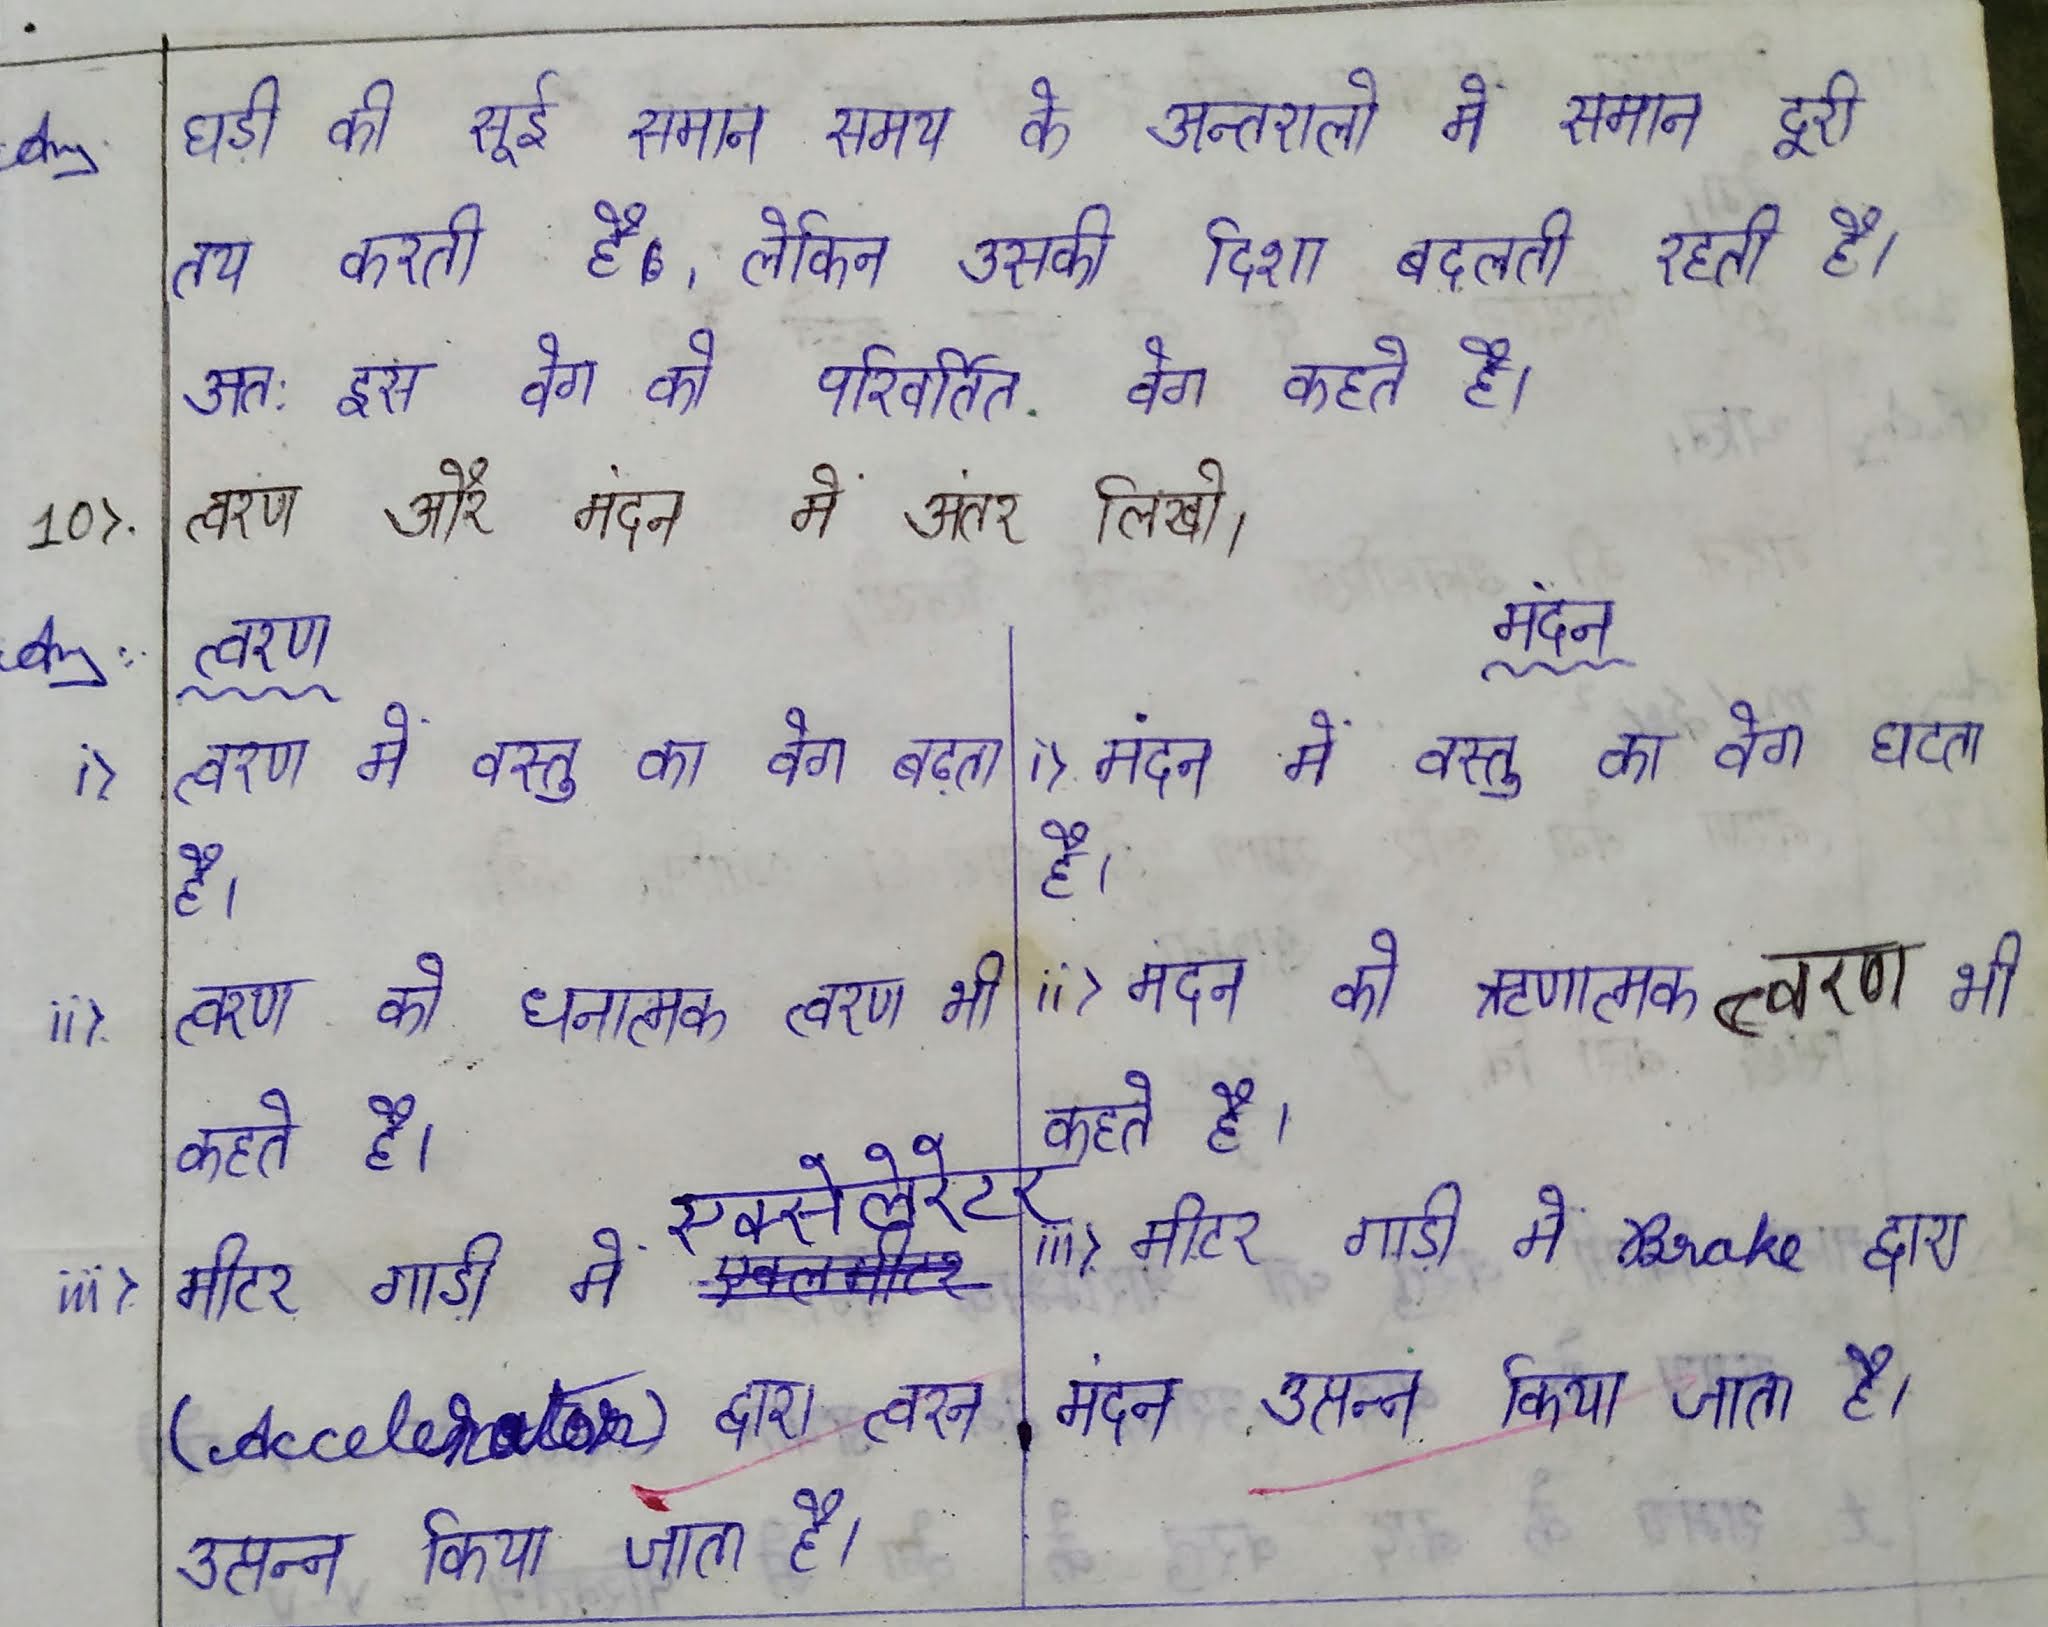 Ans घड़ी की सूई समान समय के अन्तरालो में समान दूरी
तय करती है, लेकिन उसकी दिशा बदलती रहती है।
अतः इस वेग को परिवर्तित वेग कहते है।
10>. त्वरण और मंदन में अंतर लिखो।
Ans:- त्वरण
मंदन
i> त्वरण में वस्तु का वेग बढ़ता
है।
ii>. त्वरण को धनात्मक त्वरण भी
कहते है।
एक्सेलेरेटर
iii>. मीटर गाड़ी में
(Accelerator) द्वारा त्वरन
उत्पन्न किया जाता है।
i> मंदन में वस्तु का वेग घटता
है।
ii> मदन को ऋणात्मक त्वरण भी
कहते है।
iii> मीटर गाडी में Brake द्वारा
मंदन उत्पन्न किया जाता है।